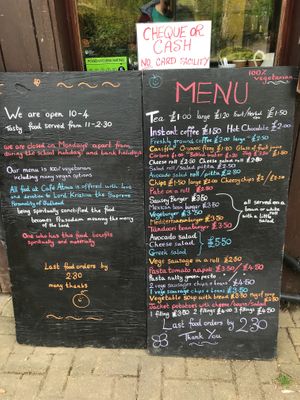 CHEQUE OR
CASH
NO CARD FACILITY
We are open 10-4
Tasty food served from 11-2.30
we are closed on Mondays apart from
during the school holidays and bank holidays
Our menu is 100% vegetarian
including many vegan options
All food at Cafe Atma is offered with love
and devotion to Lord Krishna the Supreme
Personality of Godhead
being spiritually sanctified the food
becomes Prasadam meaning the mercy
of the Lord
One who has this food benefits
spiritually and materially
Last food orders by
2.30
many thanks
100% vegetarian
MENU
Tea £1.00 large £1.30
Instant coffee £1.50 Hot Chocolate £2.00
Freshly ground coffee £2.00 large £2.50
Cheese roll £2.50 Cheese salad roll £2.80
Avocado salad roll / pitta £2.80
Chips £1.50 large £2.00 Cheesy chips £2 / £2.50
Pate on a roll £2.80
Sausage Burger £3.50
Mexican bean burger £3.50
Vegeburger £3.50
Mediterranean burger £3.50
Tandoori beanburger £3.50
all served on a
bun or
with a little
salad
Avocado salad
Cheese salad £5.50
Greek salad
Vege sausage in a roll £2.80
Pasta tomato napoli £3.50 / £4.50
Pasta nutty green pesto
2 vege sausages chips + beans £4.50
1 vege sausage chips + beans £3.50
Vegetable soup with bread £2.90
Jacket potatoes with cheese/beans/salad
1 filling £3.50 2 fillings £4.00 3 fillings £4.50
Last food orders by 2.30
Thank You